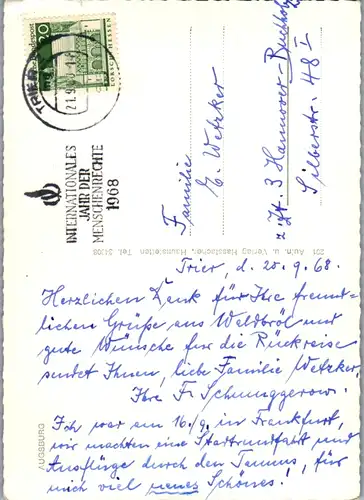 TRIER
21.9.
Bundespost
20
LORSCH/HESSEN
INTERNATIONALES
JAHR DER
MENSCHENRECHTE
1968
Familie
E. Wetzker
z. Zt. 3 Hannover-Buchholz
Silberstr. 48 I
291 Aufn. u. Verlag Haunstetten Tel.
Trier, d. 20.9.68.
Herzlichen Dank für Ihre freund-
lichen Grüße aus Waldbröl und
gute Wünsche für die Rückreise
sendet Ihnen, liebe Familie Wetzker,
Ihre F.
Ich war am 16.9. in Frankfurt,
wir machten eine Stadtrundfahrt und
Ausflüge durch den Taunus, für
mich viel neues Schönes!
AUGSBURG